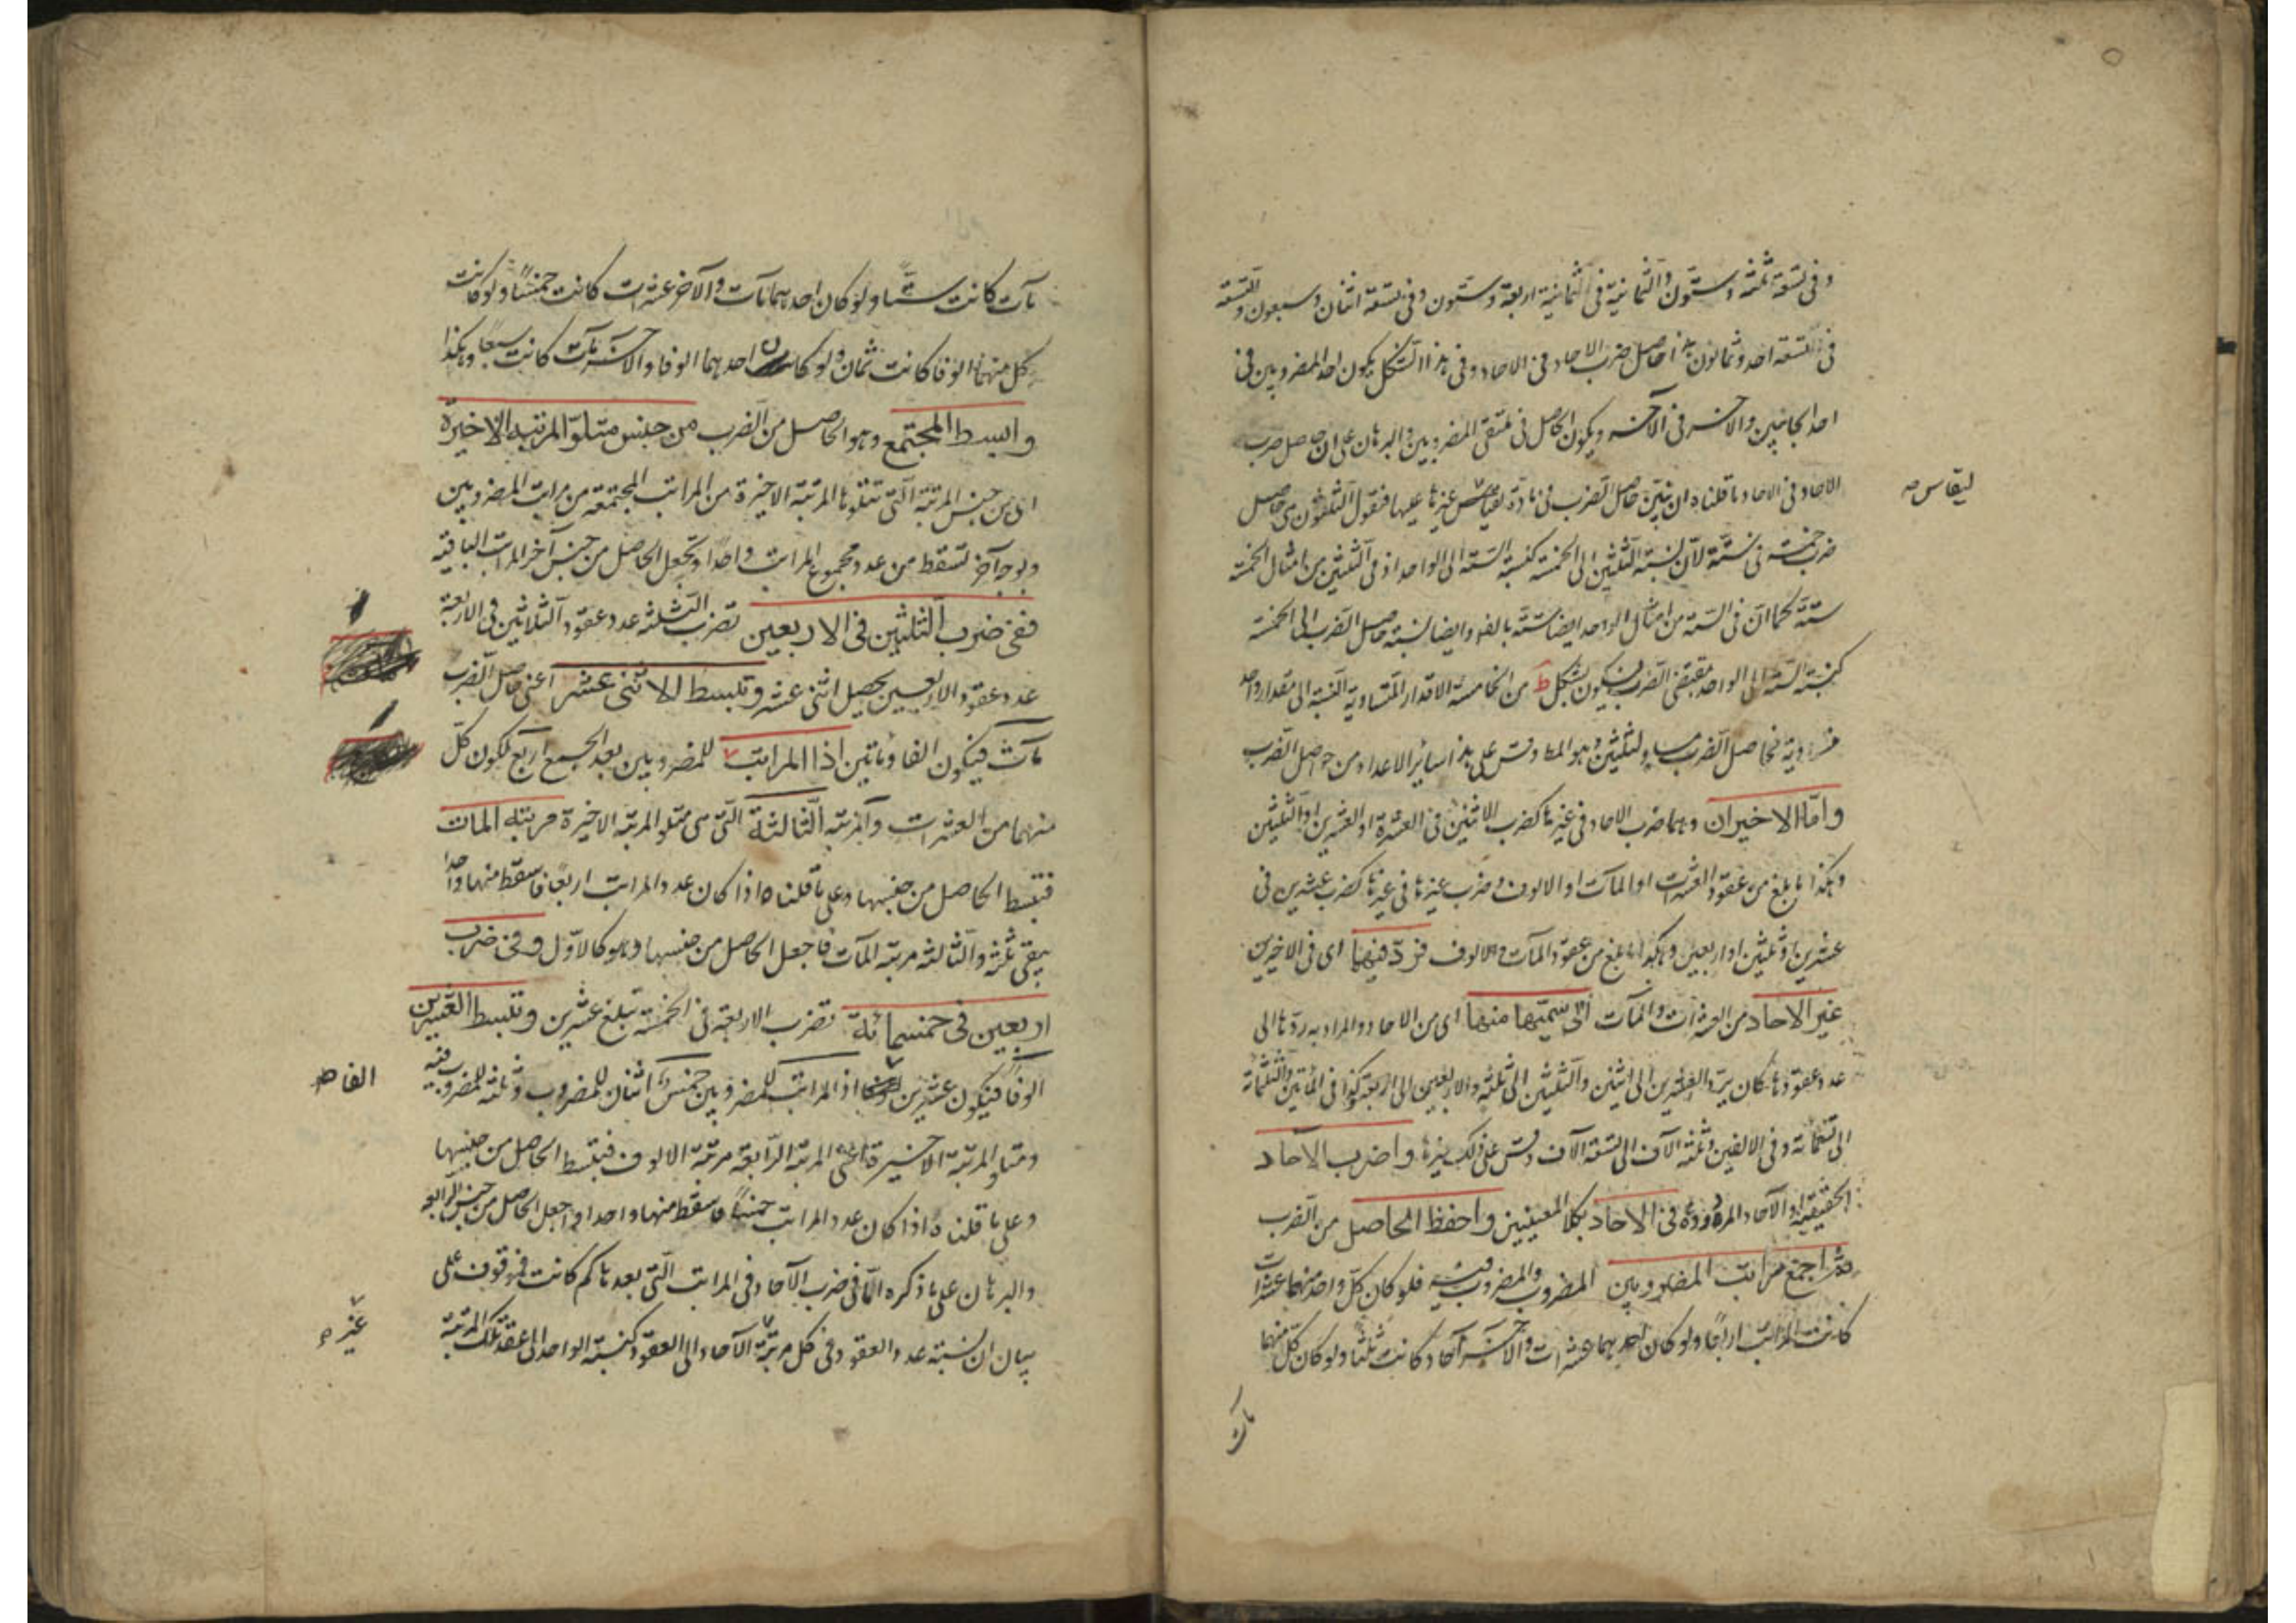 وفى تسعة ثلثة وستون والثمانية فى الثمانية اربعة وستون وفى تسعة اثنان وسبعون والتسعة
فى التسعة احد وثمانون هذا حاصل ضرب الاحاد فى الاحاد وفى هذا الشكل يكون احد المضروبين فى
احد الجانبين والاخر فى الآخر ويكون الحاصل فى ملتقى المضروبين والبرهان على ان حاصل ضرب
الاحاد فى الاحاد ما قلناه ان نبيّن حاصل الضرب فى مادّة ليقاس غيرها عليها فنقول الثلثون هى حاصل
ليقاس صه
ضرب خمسة فى ستّة لأن نسبة الثلثين الى الخمسة كنسبة الستة الى الواحد اذ فى الثلثين من امثال الخمسة
ستة كما انّ فى الستة من امثال الواحد ايضا ستّة بالفرض وايضا نسبة حاصل الضرب الى الخمسة
كنسبة الستة الى الواحد بمقتضى الضرب فيكون بشكل ط من الخامسة الاقدار المتساوية النسبة الى مقدار واحد
متساوية فحاصل الضرب مساو لثلثين وهو المط وقس على هذا سائر الاعداد من حواصل الضرب
وامّا الاخيران وهما ضرب الاحاد فى غيرها كضرب الاثنين فى العشرة او العشرين او الثلثين
وهكذا ما بلغ من عقود العشرات او المآت او الالوف وضرب غيرها فى غيرها كضرب عشرين فى
عشرين او ثلثين او اربعين وهكذا ما بلغ من عقود المآت والالوف فردّ فيهما اى فى الاخيرين
غير الاحاد من العشرات والمآت الى سميّها منها اى من الاحاد والمراد به ردّها الى
عدد عقودها كان يردّ العشرين الى اثنين والثلثين الى ثلثة والاربعين الى اربعة وكذا فى المأتين والثلثمائة
الى تسعمائة وفى الالفين وثلثة الآف الى تسعة الآف وقس على ذلك غيرها واضرب الآحاد
الحقيقية او الآحاد المردودة فى الاحاد بكلا المعنيين واحفظ الحاصل من الضرب
ثم اجمع مراتب المضروبين المضروب والمضروب فيه فلو كان كلّ واحد منهما عشرات
كانت المراتب اربعًا ولو كان احدهما عشرات والآخر آحاد كانت ثلثًا ولو كان كلّ منهما
مآت
مآت كانت ستًّا ولو كان احدهما مآت والآخر عشرات كانت خمسًا ولو كانت
كل منهما الوفا كانت ثمان ولو كان احدهما الوفا والاخر مآت كانت سبعًا وهكذا
وابسط المجتمع وهو الحاصل من الضرب من جنس متلوّ المرتبة الاخيرة
اى من جنس المرتبة الّتى تتلوها المرتبة الاخيرة من المراتب المجتمعة من مراتب المضروبين
وبوجه آخر تسقط من عدد مجموع المراتب واحدًا وتجعل الحاصل من جنس آخر المراتب الباقية
ففى ضرب الثلثين فى الاربعين تضرب الثلثة عدد عقود الثلاثين فى الاربعة
عدد عقود الاربعين يحصل اثنى عشر وتبسط الاثنى عشر اعنى حاصل الضرب
مآت فيكون الفا ومأتين اذا المراتب للمضروبين بعد الجمع اربع لكون كلّ
منهما من العشرات والمرتبة الثالثة الّتى هى متلو المرتبة الاخيرة مرتبة المآت
فتبسط الحاصل من جنسها وعلى ما قلناه اذا كان عدد المراتب اربعًا فاسقط منها واحدا
يبقى ثلثة والثالثة مرتبة المآت فاجعل الحاصل من جنسها وهو كالاوّل وفى ضرب
اربعين فى خمسمائة تضرب الاربعة فى الخمسة تبلغ عشرين وتبسط العشرين
الوفًا فيكون عشرين اذ المراتب للمضروبين خمس اثنان للمضروب وثلثة للمضروب فيه
الفا صه
ومتلو المرتبة الاخيرة اعنى المرتبة الرّابعة مرتبة الالوف فتبسط الحاصل من جنسها
وعلى ما قلناه اذا كان عدد المراتب خمسًا فاسقط منها واحدا واجعل الحاصل من جنس الرابعة
والبرهان على ما ذكره امّا فى ضرب الآحاد فى المراتب الّتى بعدها كم كانت فموقوف على
بيان ان نسبة عدد العقود فى كل مرتبة الآحاد الى العقود كنسبة الواحد الى عقد تلك المرتبة
غير صه